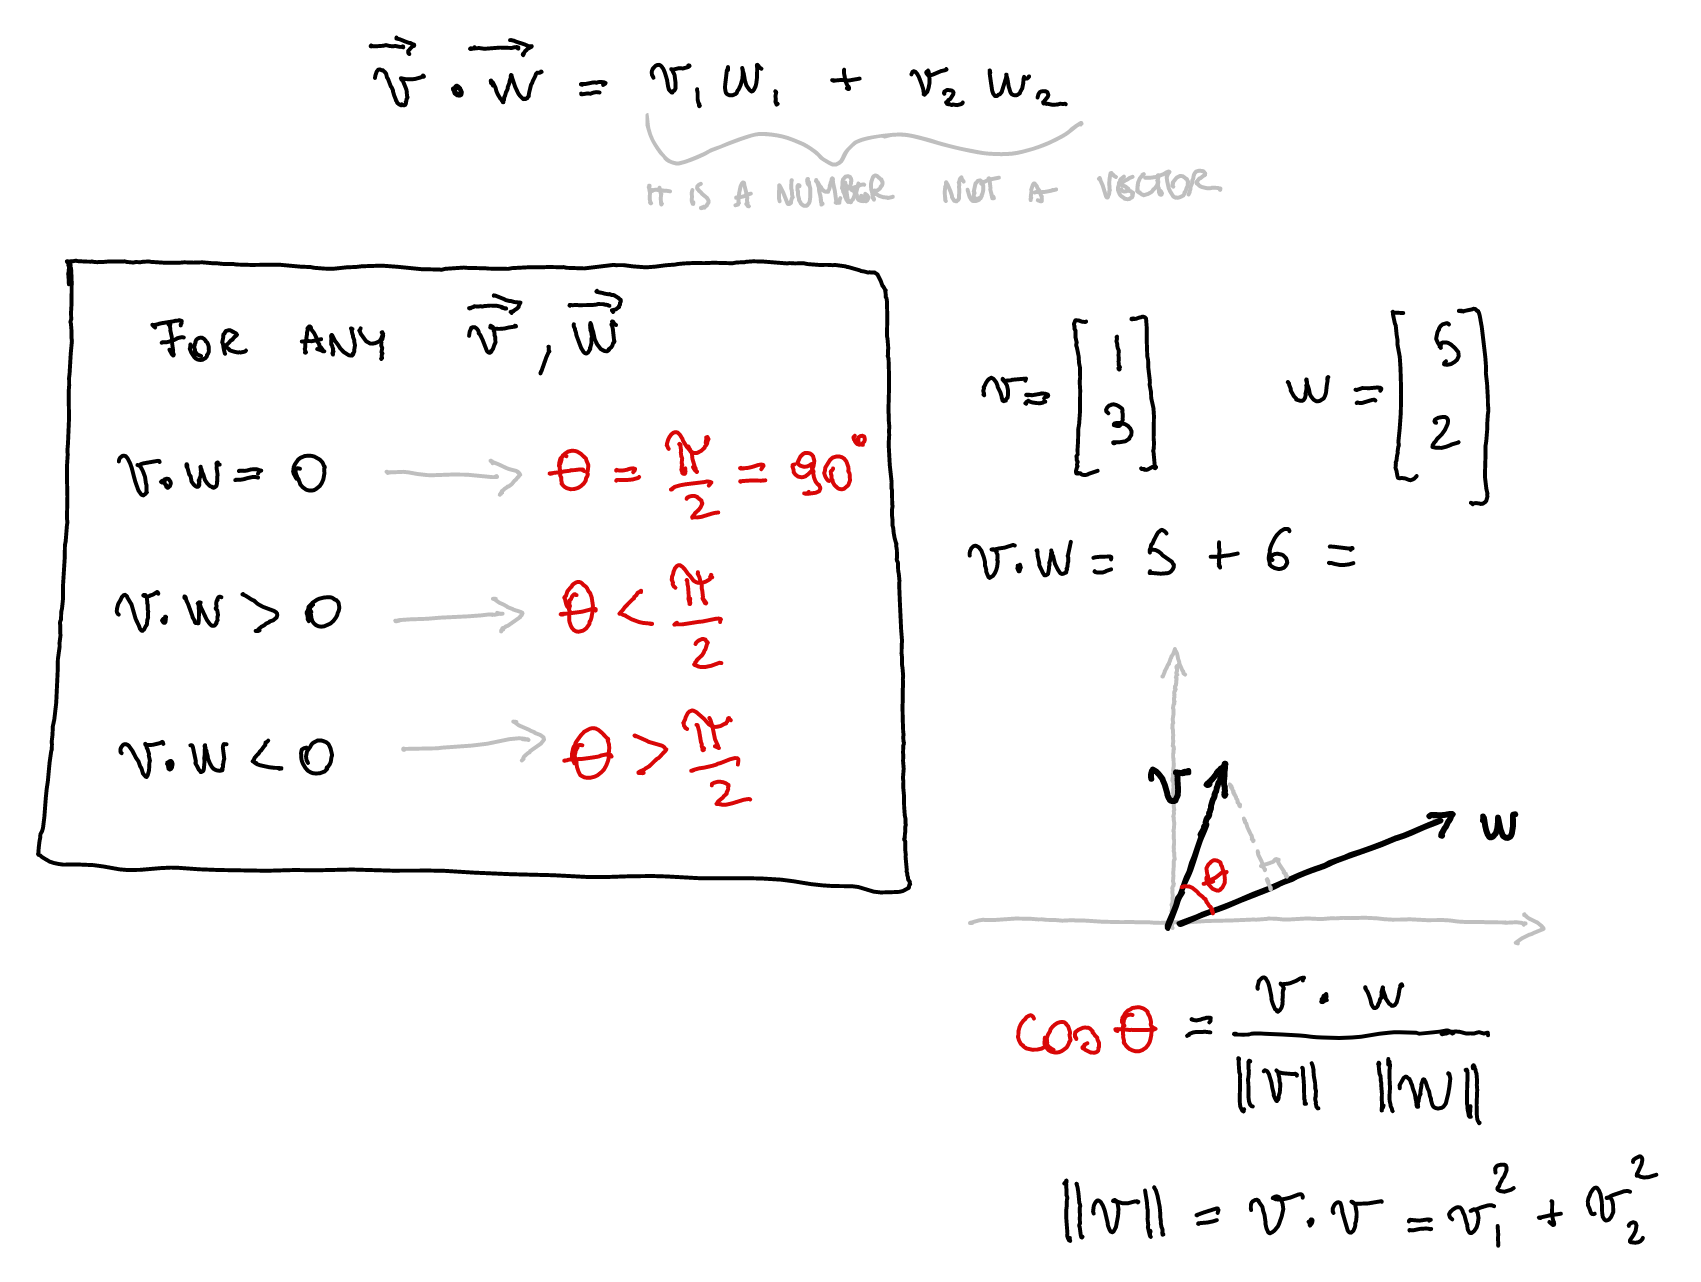 v⃗ · w⃗ = v₁ w₁ + v₂ w₂
IT IS A NUMBER NOT A VECTOR
FOR ANY v⃗, w⃗
v·w = 0 → θ = π/2 = 90°
v·w > 0 → θ < π/2
v·w < 0 → θ > π/2
v = [1 3] w = [5 2]
v·w = 5 + 6 =
v
w
θ
cos θ = v · w / ‖v‖ ‖w‖
‖v‖ = v·v = v₁² + v₂²